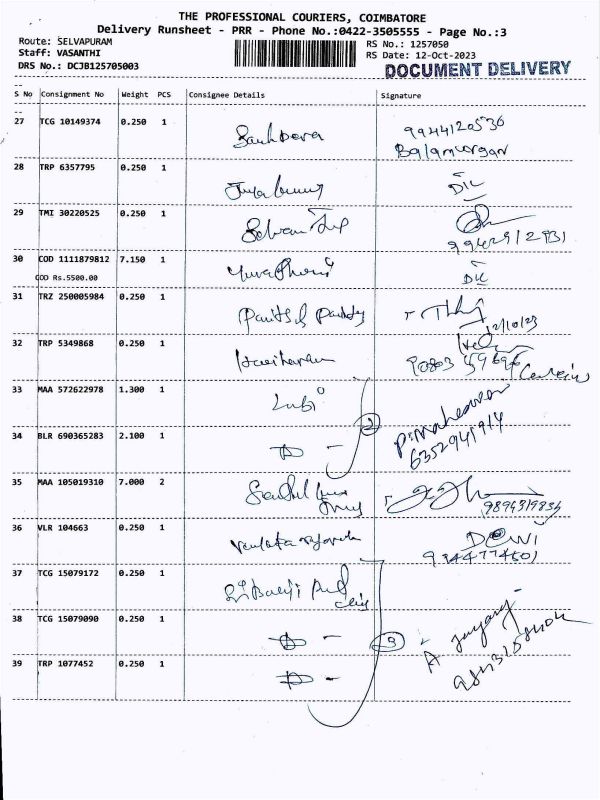 THE PROFESSIONAL COURIERS, COIMBATORE
Delivery Runsheet - PRR - Phone No.:0422-3505555 - Page No.:3
Route: SELVAPURAM RS No.: 1257050
Staff: VASANTHI RS Date: 12-Oct-2023
DRS No.: DCJB125705003 DOCUMENT DELIVERY
S No Consignment No Weight PCS Consignee Details Signature
27 TCG 10149374 0.250 1 9944120536
Balamurgan
28 TRP 6357795 0.250 1
29 TMI 30220525 0.250 1
9942912931
30 COD 1111879812 7.150 1
COD Rs.5500.00
31 TRZ 250005984 0.250 1
12/10/23
32 TRP 5349868 0.250 1 Hariharan
33 MAA 572622978 1.300 1
2
34 BLR 690365283 2.100 1 P. Maheswari
6352941914
35 MAA 105019310 7.000 2
9894319834
36 VLR 104663 0.250 1 DEWI
9344774601
37 TCG 15079172 0.250 1 Sri Balaji
38 TCG 15079090 0.250 1
3
39 TRP 1077452 0.250 1